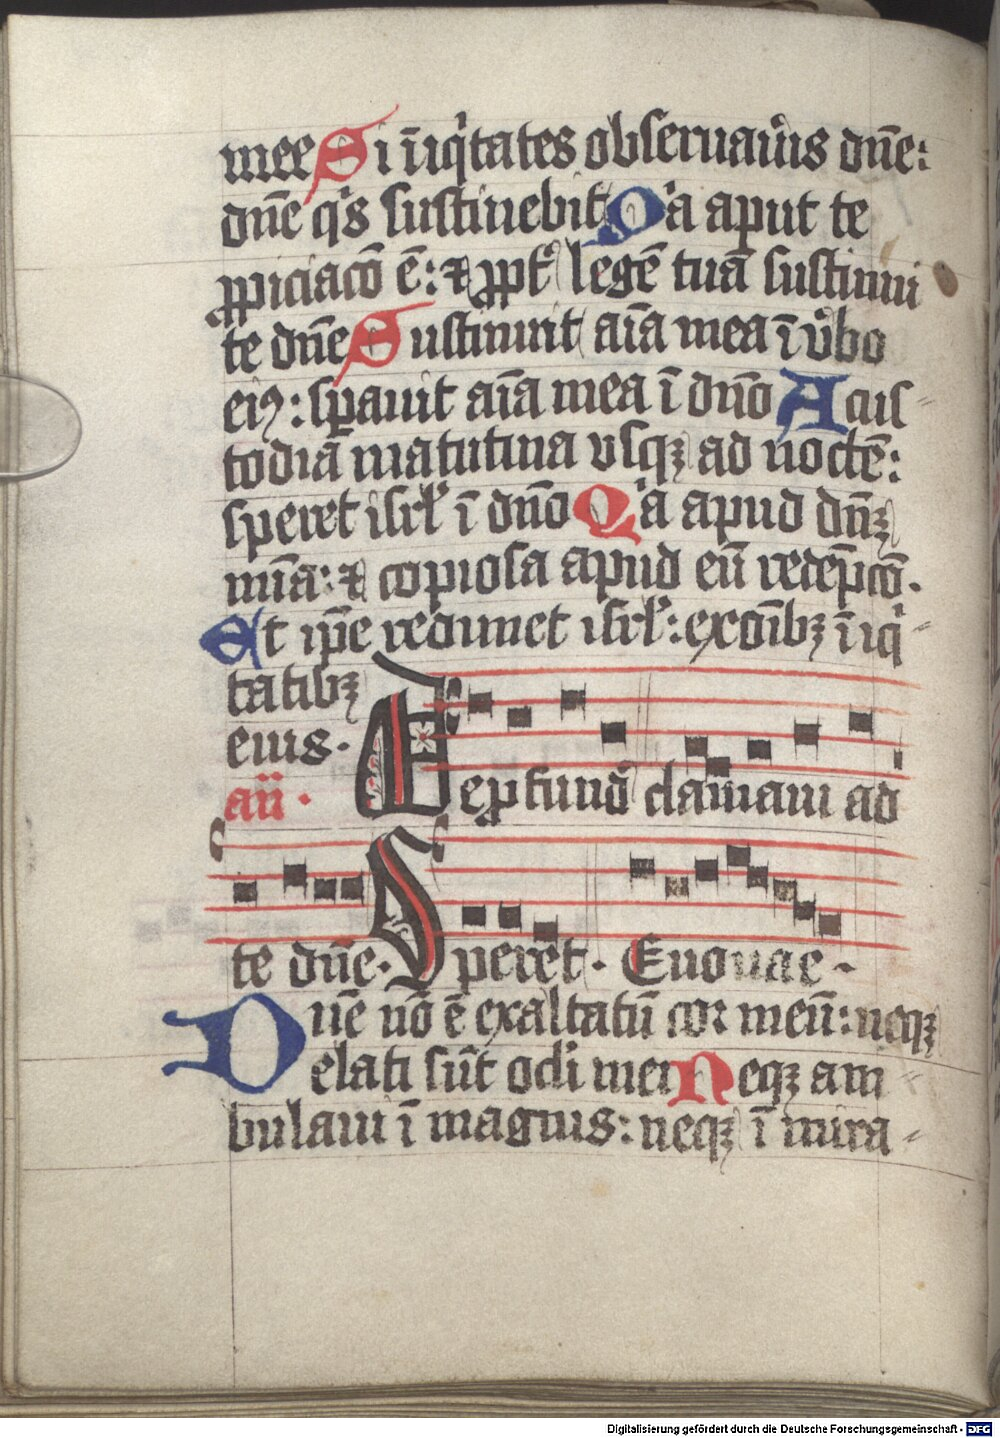 mee Si īiq̇tates obſeruaůis dn̄e:
dn̄e qis ſuſtinebit Qia aput te
ꝓpiciacō ē: ⁊ ꝓpť legē tuā ſuſtinui
te dn̄e Suſtinuit aīa mea ī v̓bo
eiꝰ: ſꝑauit aīa mea ī dn̄o A cuſ
todia matutina vſqꝫ ad noctē:
ſperet iſrl̓ ī dn̄o Qia apud dn̄ꝫ
mīa: ⁊ copioſa apud eū redēpcō.
Et ip̄e redimet iſrl̓: ex oībꝫ īiq̇
tatibꝫ
eius.
an̄.
De ꝓfund̓ clamaui ad
te dn̄e. Speret. Euouae.
Dn̄e nō ē exaltatū cor meū: neqꝫ
elati ſūt ocli mei Neqꝫ am
bulaui ī magnis: neqꝫ ī mira
Digitalisierung gefördert durch die Deutsche Forschungsgemeinschaft - DFG